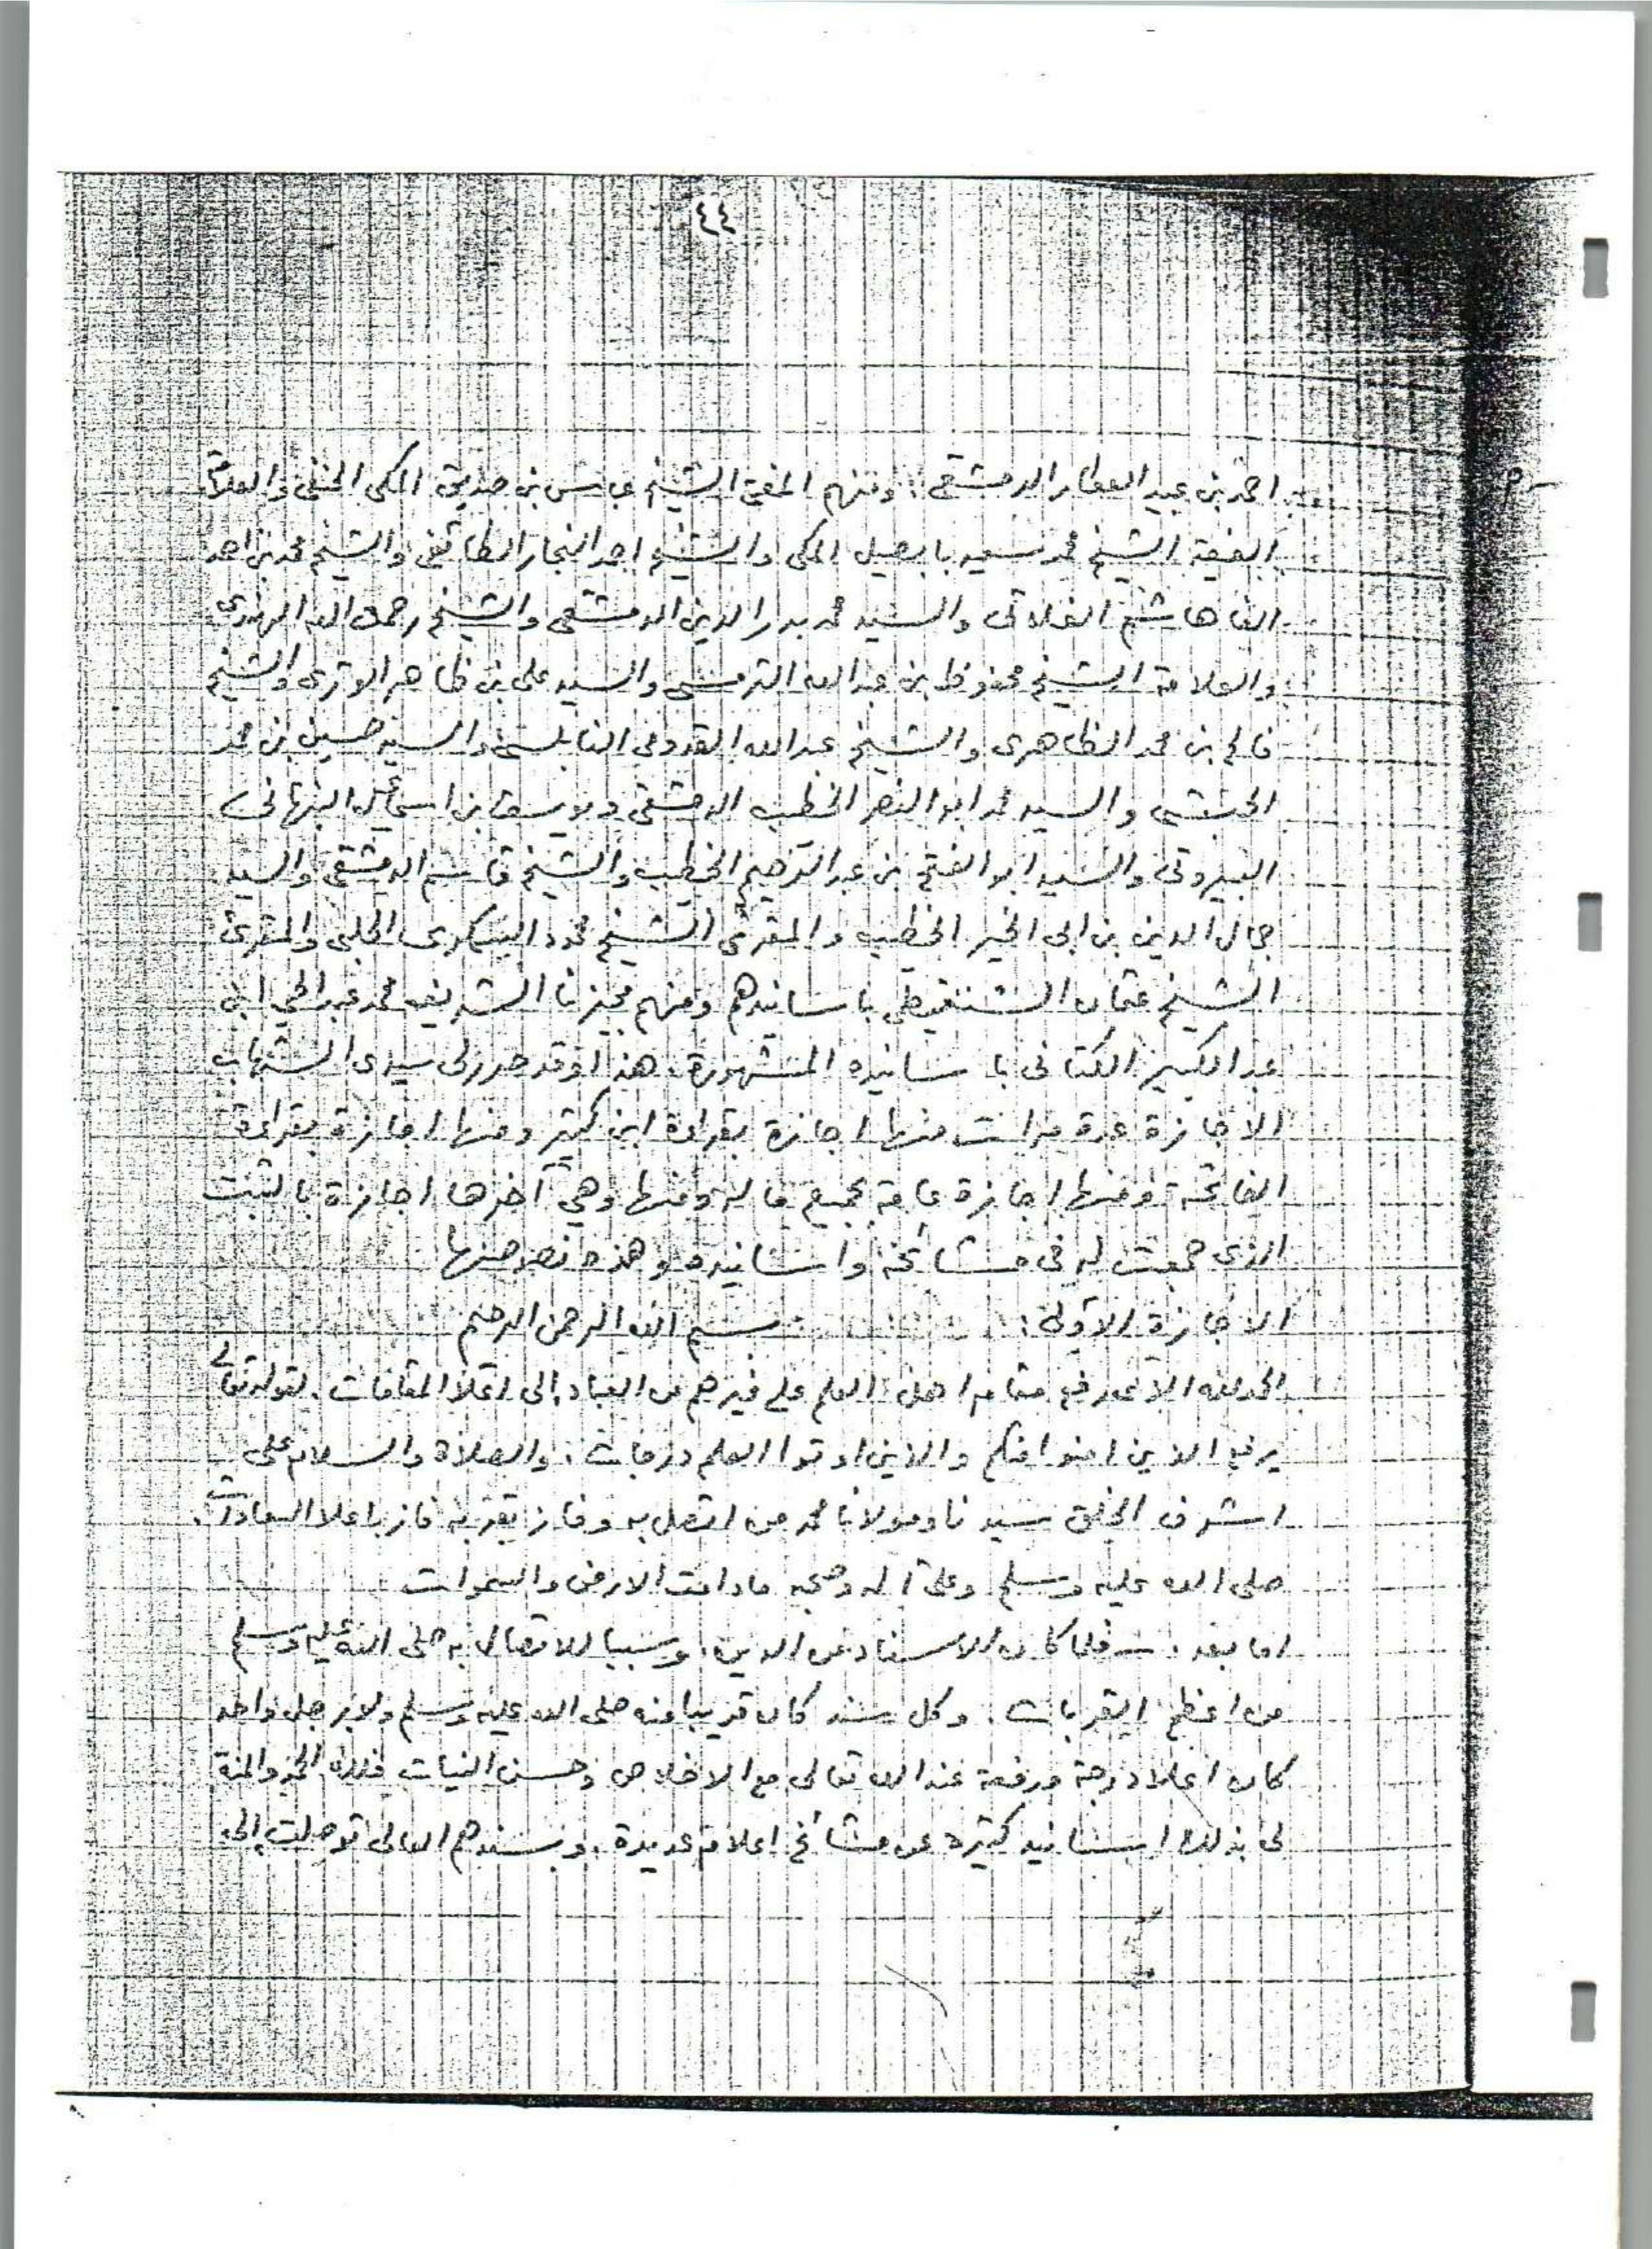 ٤٤
احمد بن عبيد العطار الدمشقي، ومنهم المفتي الشيخ عباس بن صديق المكي الحنفي والعلامة
الفقيه الشيخ محمد سعيد بابصيل المكي والشيخ احمد النجار الطائفي والشيخ محمد بن احمد
الفا هاشم الفلاتى والسيد محمد بدر الدين الدمشقى والشيخ رحمة الله الهندى
والعلامة الشيخ محفوظ بن عبد الله الترمسى والسيد على بن ظاهر الوترى والشيخ
فالح بن محمد الظاهرى والشيخ عبد الله القدومى النابلسى والسيد حسين بن محمد
الحبشى والسيد محمد ابو النصر الخطيب الدمشقى ويوسف بن اسمائيل النبهانى
البيروتى والسيد ابو الفتح بن عبد الرحيم الخطيب والشيخ قاسم الدمشقى والسيد
جمال الدين بن ابى الخير الخطيب والمقرئ الشيخ محمود السكرى الحلبى والمقرئ
الشيخ عثمان الشنقيطى باسانيدهم ومنهم مجيزنا الشريف محمد عبد الحي ابن
عبد الكبير الكتانى باسانيده المشهورة، هذا وقد صدر لى سيدى الشهاب
الاجازة عدة مرات منها اجازة بقراءة ابن كثير ومنها اجازة بقراءة
الفاتحة ومنها اجازة عامة بجميع ماله ومنها وهي آخرها اجازة بالثبت
الذى جمعت له فى مشائخه واسانيده وهذه نصوصها
الاجازة الاولى: بسم الله الرحمن الرحيم
الحمد لله الذى رفع مقام اهل العلم على غيرهم من العباد إلى اعلا المقامات. لقوله تعالى
يرفع الذين امنوا منكم والذين اوتوا العلم درجات. والصلاة والسلام على
اشرف الخلق سيدنا ومولانا محمد من اتصل به وفاز بقربه فاز باعلا السعادات.
صلى الله عليه وسلم وعلى آله وصحبه مادامت الارض والسموات
اما بعد. فلما كان الاسناد من الدين. وسببا للاتصال به صلى الله عليه وسلم
من اعظم القربات. وكل سند كان قريبا منه صلى الله عليه وسلم ولو برجل واحد
كان اعلا درجة ورفعة عند الله تعالى مع الاخلاص وحسن النيات فلله الحمد والمنة
لى بذلك اسانيد كثيرة عن مشائخ اعلام عديدة. وبسندهم العالى توصلت إلى